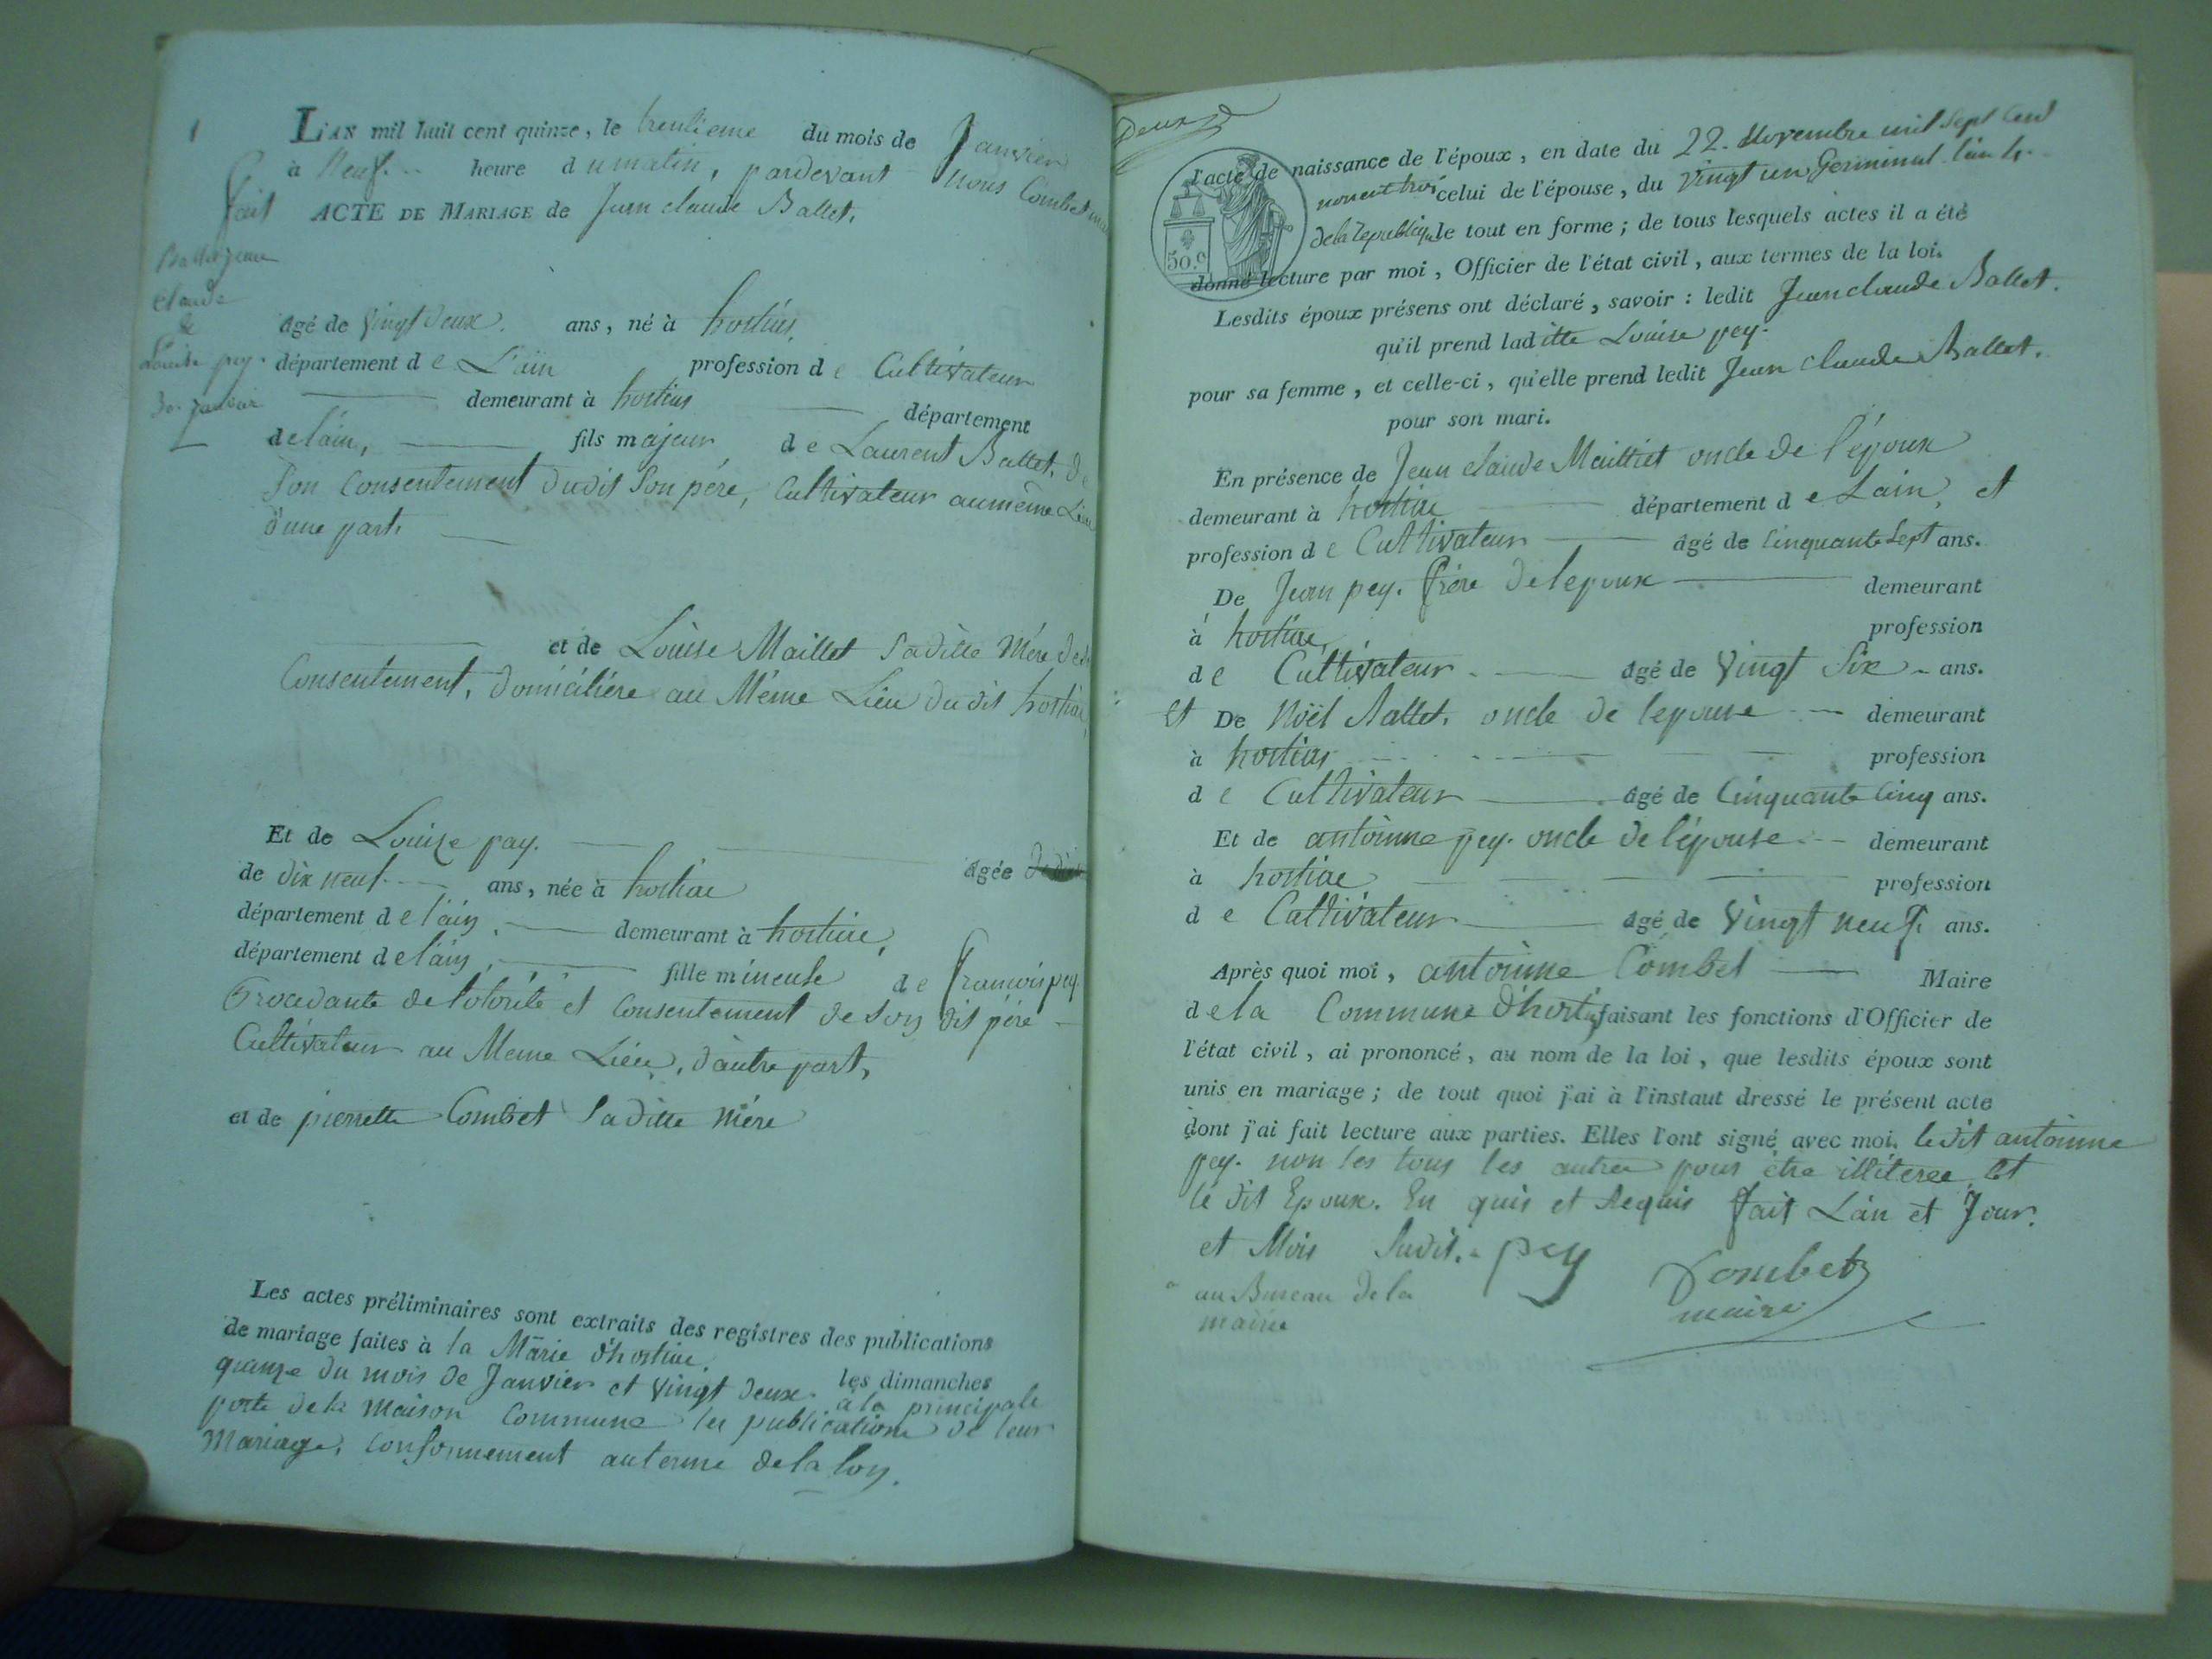 1
L'AN mil huit cent quinze, le trentieme du mois de Janvier
à Neuf heure du matin, pardevant Nous Combet
fait ACTE DE MARIAGE de Jean claude Ballet,
Ballet Jean
Claude
&
Louise pey.
30. Janvier
âgé de vingt deux. ans, né à hostias,
département de L'ain profession de Cultivateur
demeurant à hostias département
de lain, fils majeur de Laurent Ballet, de
Son Consentement dudit Son père, Cultivateur au même Lieu
d'une part.
et de Louise Maillet Saditte Mére de
Consentement, domiciliére au Méme Lieu dudit hostiaz
Et de Louise pay. agée
de dix neuf ans, née à hostiae
département de l'ain, demeurant à hostiae,
département de lain, fille mineuse de francois pey.
Procedante de lotorité et Consentement de Son dit pére
Cultivateur au Meme Lieu, d'autre part,
et de pierrette Combet Saditte mére
Les actes préliminaires sont extraits des registres des publications
de mariage faites à la Marie d'hostiae. les dimanches
quinze du mois de Janvier et vingt deux. à la principale
porte de la maison Commune les publications de leur
Mariage, Conformement au terme de la loy.
Deux
50.c
l'acte de naissance de l'époux, en date du 22. Novembre mil Sept Cent
nonent troi celui de l'épouse, du vingt un Germinal l'an 4.
de la republique le tout en forme; de tous lesquels actes il a été
donné lecture par moi, Officier de l'état civil, aux termes de la loi.
Lesdits époux présens ont déclaré, savoir: ledit Jean claude Ballet.
qu'il prend laditte Louise pey.
pour sa femme, et celle-ci, qu'elle prend ledit Jean claude Ballet.
pour son mari.
En présence de Jean claude Maillet oncle de l'époux
demeurant à hostiae département de Lain, et
profession de Cultivateur âgé de Cinquante Sept ans.
De Jean pey. frére de lepoux demeurant
à hostiae, profession
de Cultivateur âgé de vingt Six ans.
et De Noël Ballet. oncle de lepouse demeurant
à hostias profession
de Cultivateur âgé de Cinquante Cinq ans.
Et de antoinne pey. oncle de lépouse demeurant
à hostiae profession
de Cultivateur âgé de vingt neuf. ans.
Après quoi moi, antoinne Combet Maire
de la Commune d'hostias faisant les fonctions d'Officier de
l'état civil, ai prononcé, au nom de la loi, que lesdits époux sont
unis en mariage; de tout quoi j'ai à l'instant dressé le présent acte
dont j'ai fait lecture aux parties. Elles l'ont signé avec moi. ledit antoinne
pey. non les tous les autres pour étre illiteree et
le dit Epoux. En quis et Requis fait L'an et Jour.
et Mois Sudit. pey Combet
au Bureau de la maire
mairie